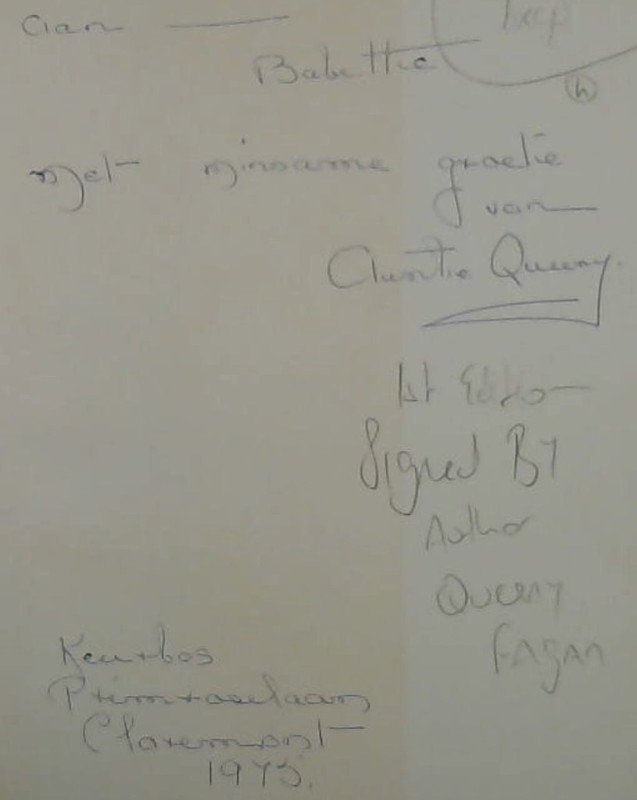 Aan —
Babette
Met minsame groetie
van
Auntie Queeny.
1st Edition
Signed By
Author
Queeny
Fagan
Keurbos
Primroselaan
Claremont
1973.